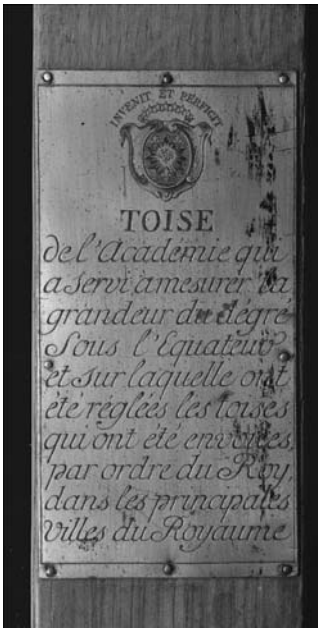 INVENIT ET PERFICIT
TOISE
de l'Académie qui
a servi a mesurer la
grandeur du dégré
Sous l'Equateur
et sur laquelle ont
été réglées les toises
qui ont été envoiées,
par ordre du Roy,
dans les principales
Villes du Royaume